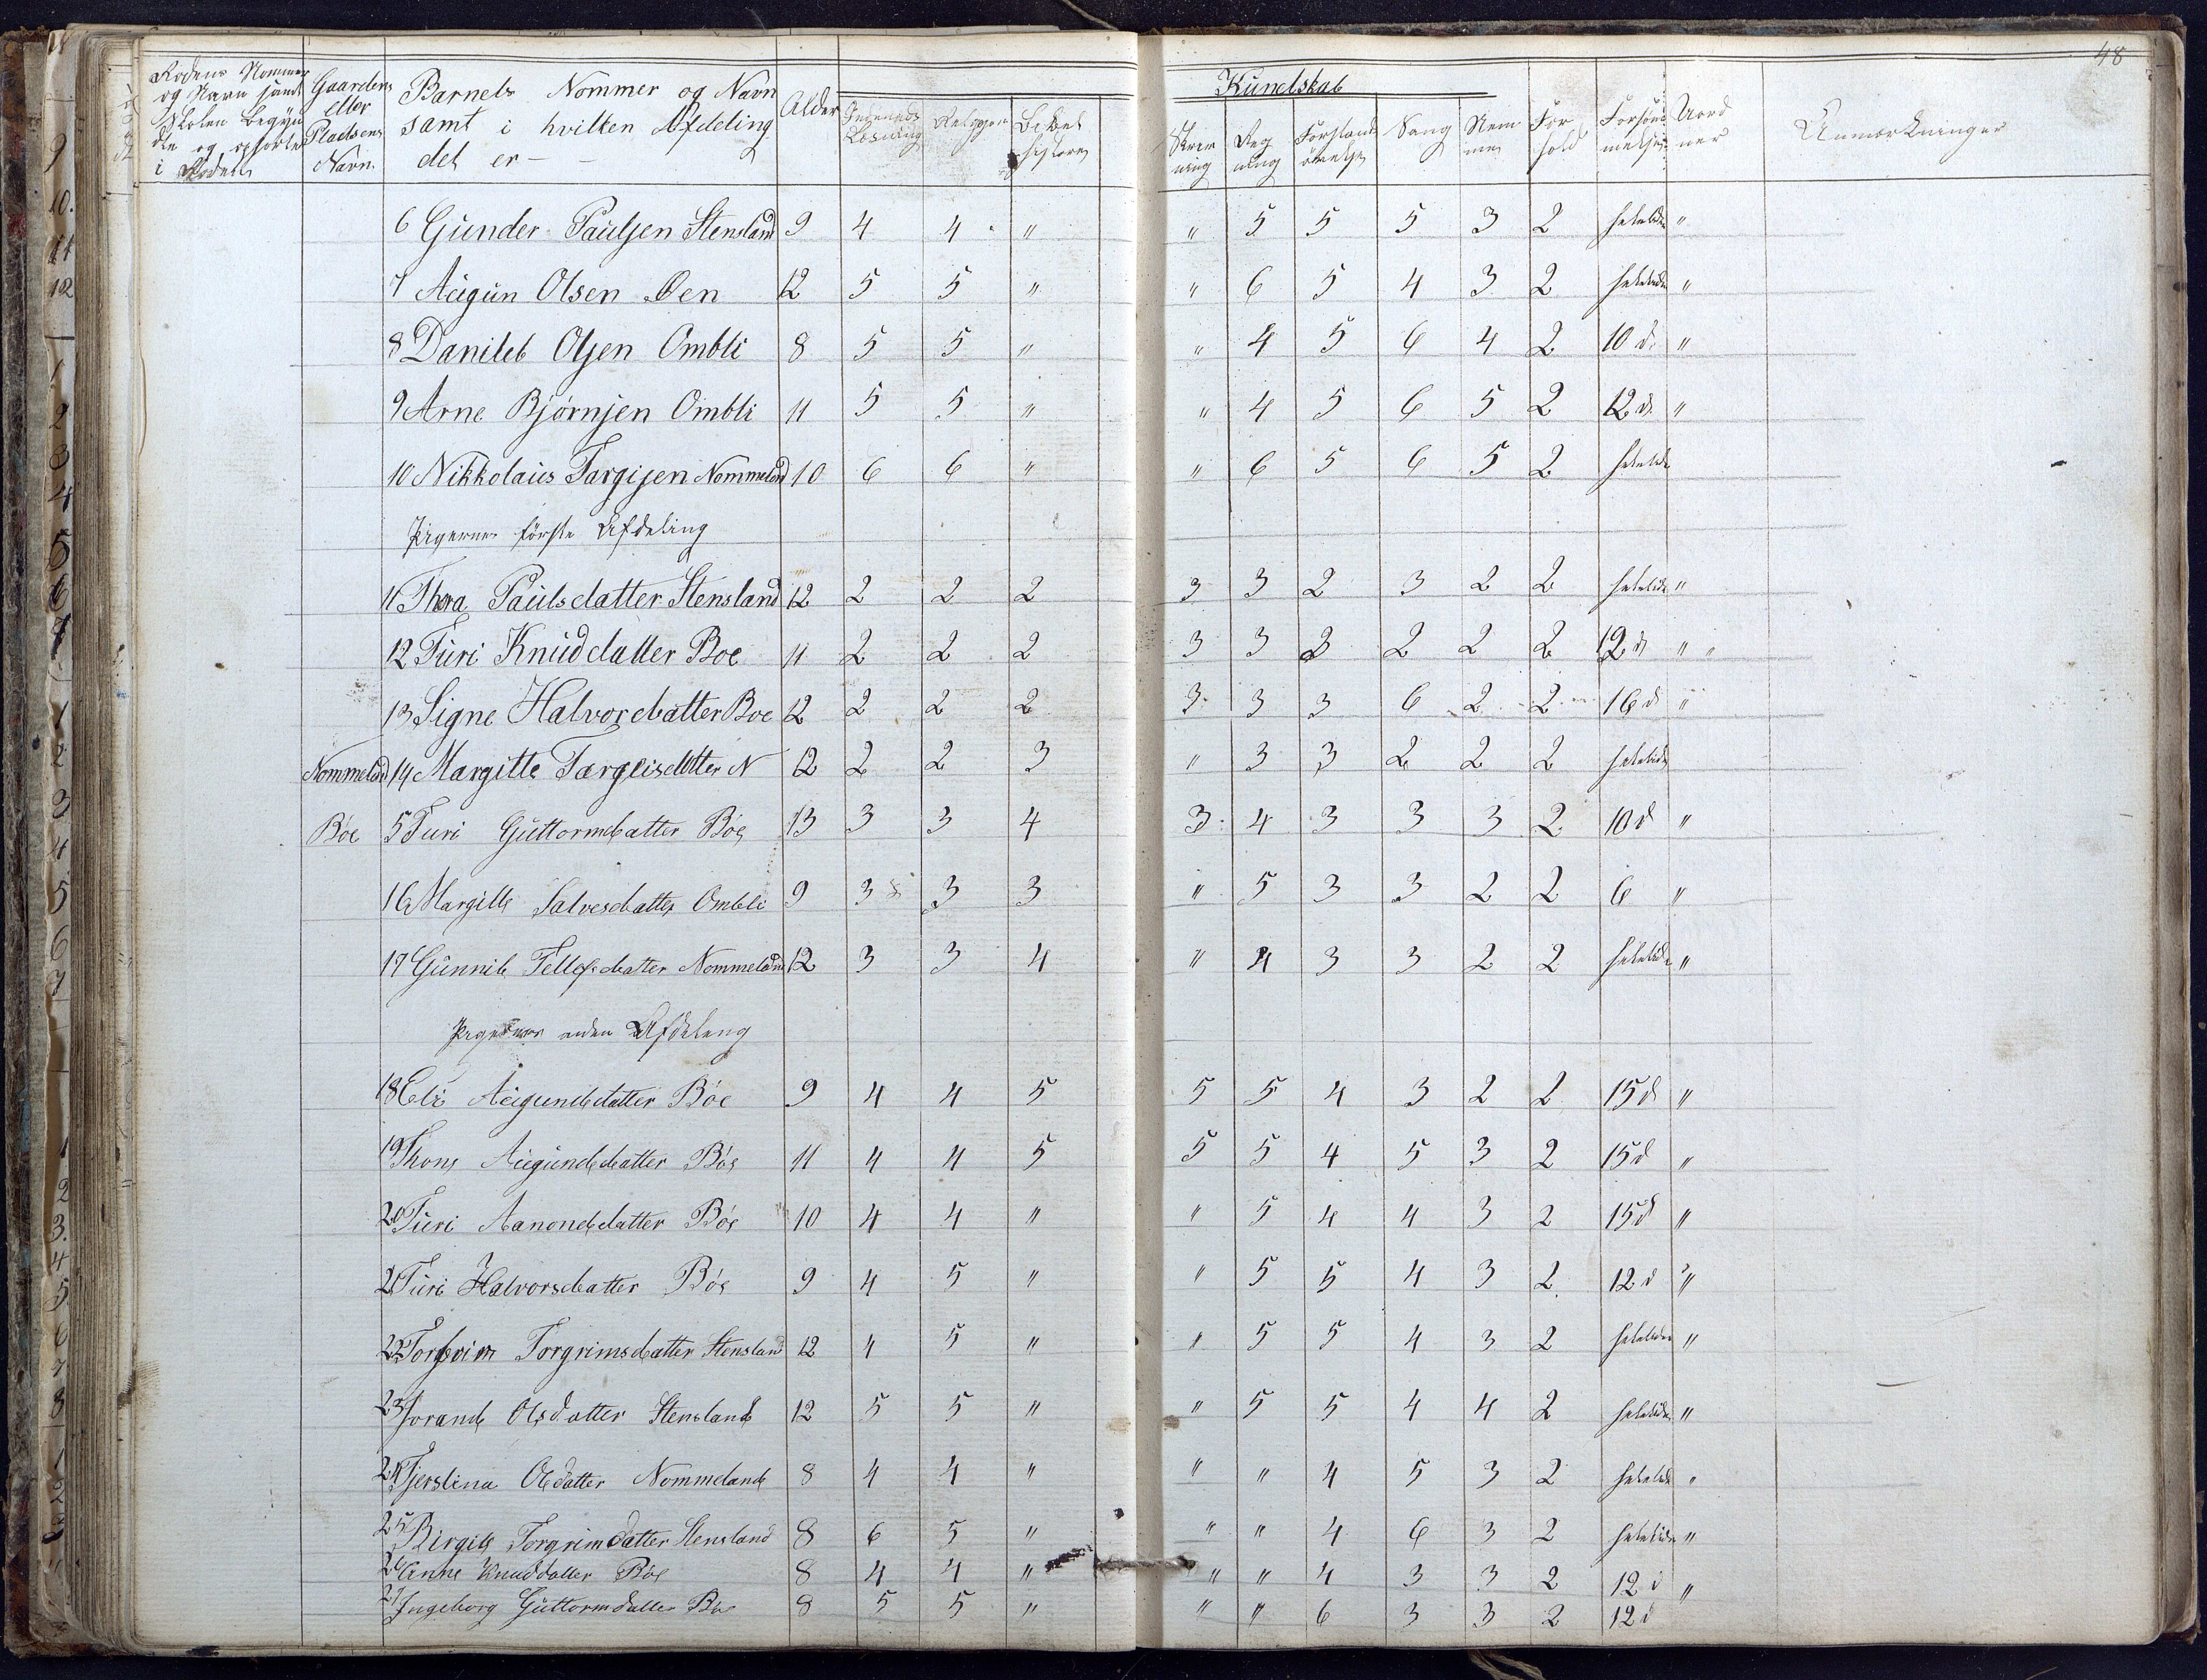 48
Kundskab
Rodens Nommer Gaardens Barnets Nommer og Navn Alder
og Navn samt eller samt i hvilken Afdeling
Skolen Begyn Pladsens det er
i Roden Navn
Læsning Religion Bibel historie Skriv ning Reg ning Forstands øvelse Sang Nem me For hold Forsøm melser Uord ner Anmærkninger
6 Gunder Paulsen Stensland 9 4 4 " " 5 5 5 3 2 heletiden "
7 Augun Olsen Øen 12 5 5 " " 6 5 4 3 2 heletiden "
8 Danileb Olsen Ombli 8 5 5 " " 4 5 6 4 2 10 d. "
9 Arne Bjørnsen Ombli 11 5 5 " " 4 5 6 5 2 12 d. "
10 Nikkolaus Targisen Nommeland 10 6 6 " " 6 5 6 5 2 heletiden
Pigernes første Afdeling
11 Thora Paulsdatter Stensland 12 2 2 2 3 3 2 3 2 2 heletiden "
12 Turi Knuddatter Boe 11 2 2 2 3 3 3 2 2 2 12 d " "
13 Signe Halvorsdatter Boe 12 2 2 2 3 3 3 6 2 2 16 d "
Nommeland 14 Margitte Targeisdatter N 12 2 2 3 " 3 3 2 2 2 heletiden
Bóe 5 Turi Guttormdatter Bóe 13 3 3 4 3 4 3 3 3 2 10 d "
16 Margitte Salvesdatter Ombli 9 3 3 3 " 5 3 3 2 2 6 "
17 Gunnil Tellefsdatter Nommeland 12 3 3 4 " 4 3 3 2 2 heletiden "
Pigernes anden Afdeling
18 Eli Augunddatter Bóe 9 4 4 5 5 5 4 3 2 2 15 d "
19 Thone Augunddatter Bóe 11 4 4 5 5 5 4 5 3 2 15 d "
20 Turi Aanonddatter Bóe 10 4 4 " " 5 4 4 3 2 15 d "
21 Turi Halvorsdatter Bóe 9 4 5 " " 5 5 4 3 2 12 d "
22 Torgrimsdatter Stensland 12 4 5 " " 5 5 4 3 2 heletiden "
23 Jorand Olsdatter Stensland 12 5 5 " " 5 5 4 4 2 heletiden "
24 Tjerstina Olsdatter Nommeland 8 4 4 " " " 4 5 3 2 heletiden "
25 Birgitte Torgrimdatter Stensland 8 6 5 " " " 4 6 3 2 heletiden "
26 Anne Knuddatter Bóe 8 4 4 " " " 4 3 3 2 12 d "
27 Ingeborg Guttormdatter Bóe 8 5 5 " " " 6 3 3 2 12 d